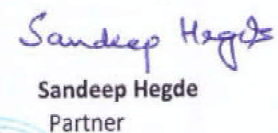 Sandeep Hegde
Sandeep Hegde
Partner